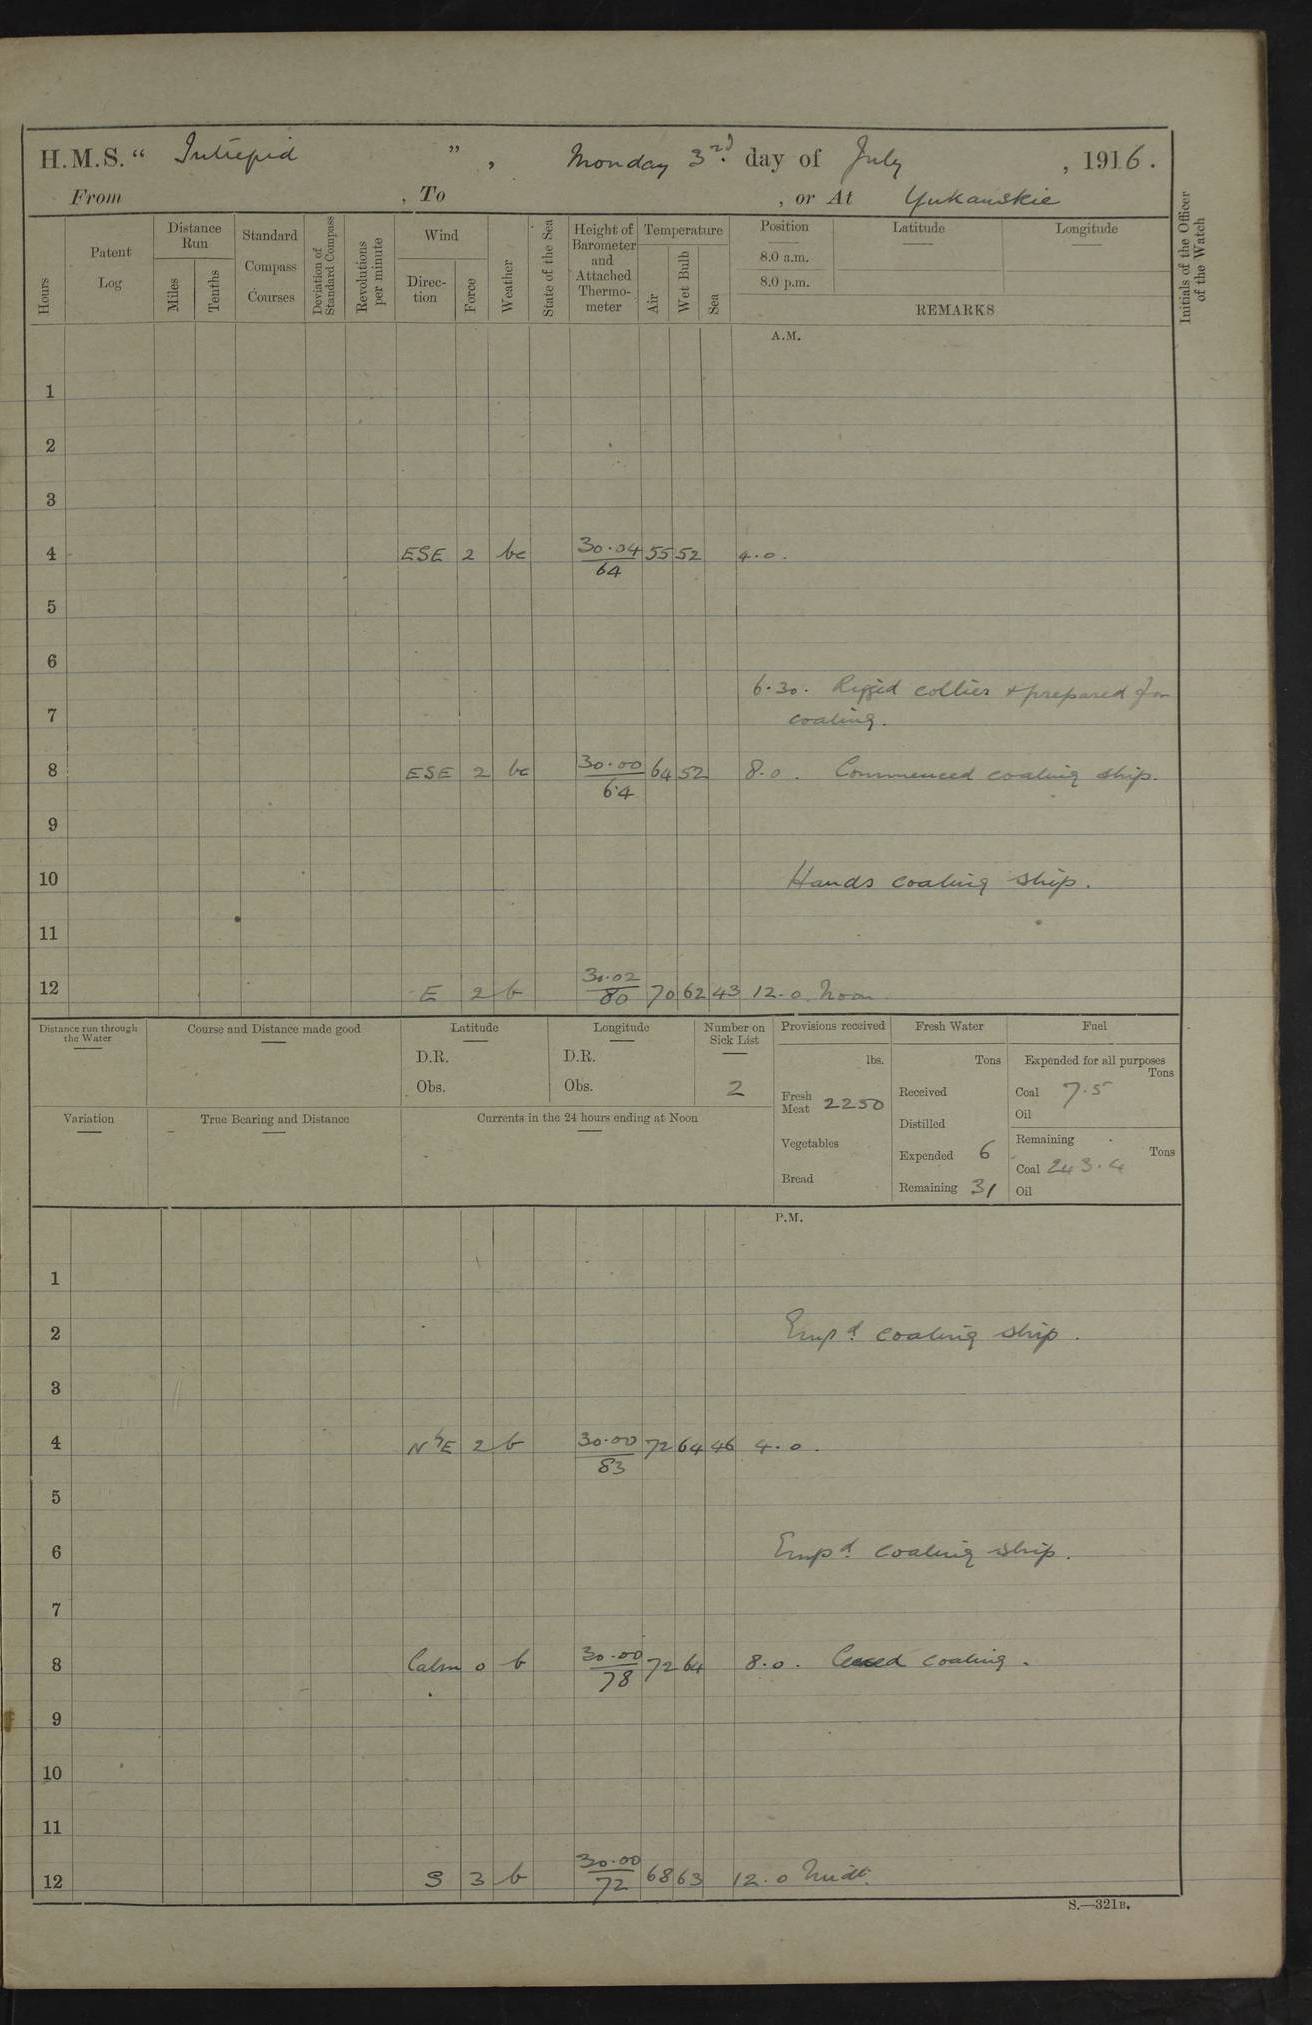 H.M.S. “ Intrepid ” , Monday 3rd. day of July , 1916.
From , To , or At Yukanskie
Hours
Patent Log
Distance Run
Miles
Tenths
Standard Compass Courses
Deviation of Standard Compass
Revolutions per minute
Wind
Direc- tion
Force
Weather
State of the Sea
Height of Barometer and Attached Thermo- meter
Temperature
Air
Wet Bulb
Sea
Position Latitude Longitude
8.0 a.m.
8.0 p.m.
REMARKS
Initials of the Officer of the Watch
A.M.
1
2
3
4 ESE 2 bc 30.04 55 52 4.0.
64
5
6
6.30. Rigged collier & prepared for
7 coaling.
8 ESE 2 bc 30.00 64 52 8.0. Commenced coaling ship.
64
9
10 Hands coaling ship.
11
12 E 2 b 30.02 70 62 43 12.0 Noon
80
Distance run through the Water
Course and Distance made good
Latitude
D.R.
Obs.
Longitude
D.R.
Obs.
Number on Sick List
2
Variation
True Bearing and Distance
Currents in the 24 hours ending at Noon
Provisions received
lbs.
Fresh Meat 2250
Vegetables
Bread
Fresh Water
Tons
Received
Distilled
Expended 6
Remaining 31
Fuel
Expended for all purposes
Tons
Coal 7.5
Oil
Remaining
Tons
Coal 243.4
Oil
P.M.
1
2 Empd. coaling ship.
3
4 NbE 2 b 30.00 72 64 46 4.0.
83
5
6 Empd. coaling ship.
7
8 Calm 0 b 30.00 72 64 8.0. Ceased coaling.
78
9
10
11
12 S 3 b 30.00 68 63 12.0 Midt.
72
S.—321B.